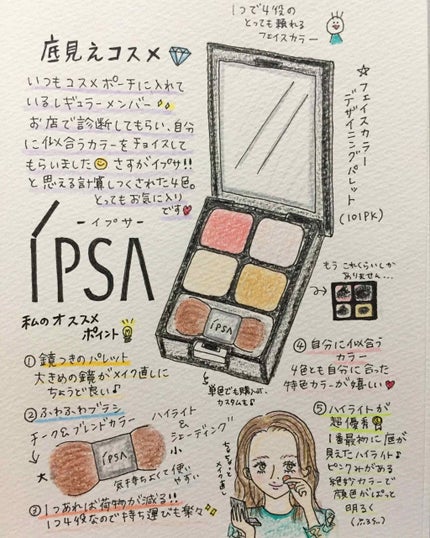 1つで4役の
とっても頼れる
フェイスカラー
底見えコスメ
いつもコスメポーチに入れて
いるレギュラーメンバー
お店で診断してもらい、自分
に似合うカラーをチョイスして
もらいました さすがイプサ!!
と思える計算しつくされた4色。
とってもお気に入り
です
ーイプサー
IPSA
☆フェイスカラー
デザイニングパレット
(101PK)
もう これくらいしか
ありません…
IPSA
私のオススメ
ポイント
①鏡つきのパレット
大きめの鏡がメイク直しに
ちょうど良い♪
単色でも購入OK
カスタムも♪
②ふわふわブラシ
チーク&ブレンドカラー
ハイライト
&
シェーディング
大
IPSA
小
気持ちよくて使い
やすい
③1つあれば荷物が減る!!
1つ4役なので持ち運びも楽々
ちょちょっと
メイク直し
④自分に似合う
カラー
4色とも自分に合った
特色カラーが嬉しい
⑤ハイライトが
超優秀
1番最初に底が
見えたハイライト♪
ピンクみがある
絶妙カラーで
顔色がぱっと
明るく